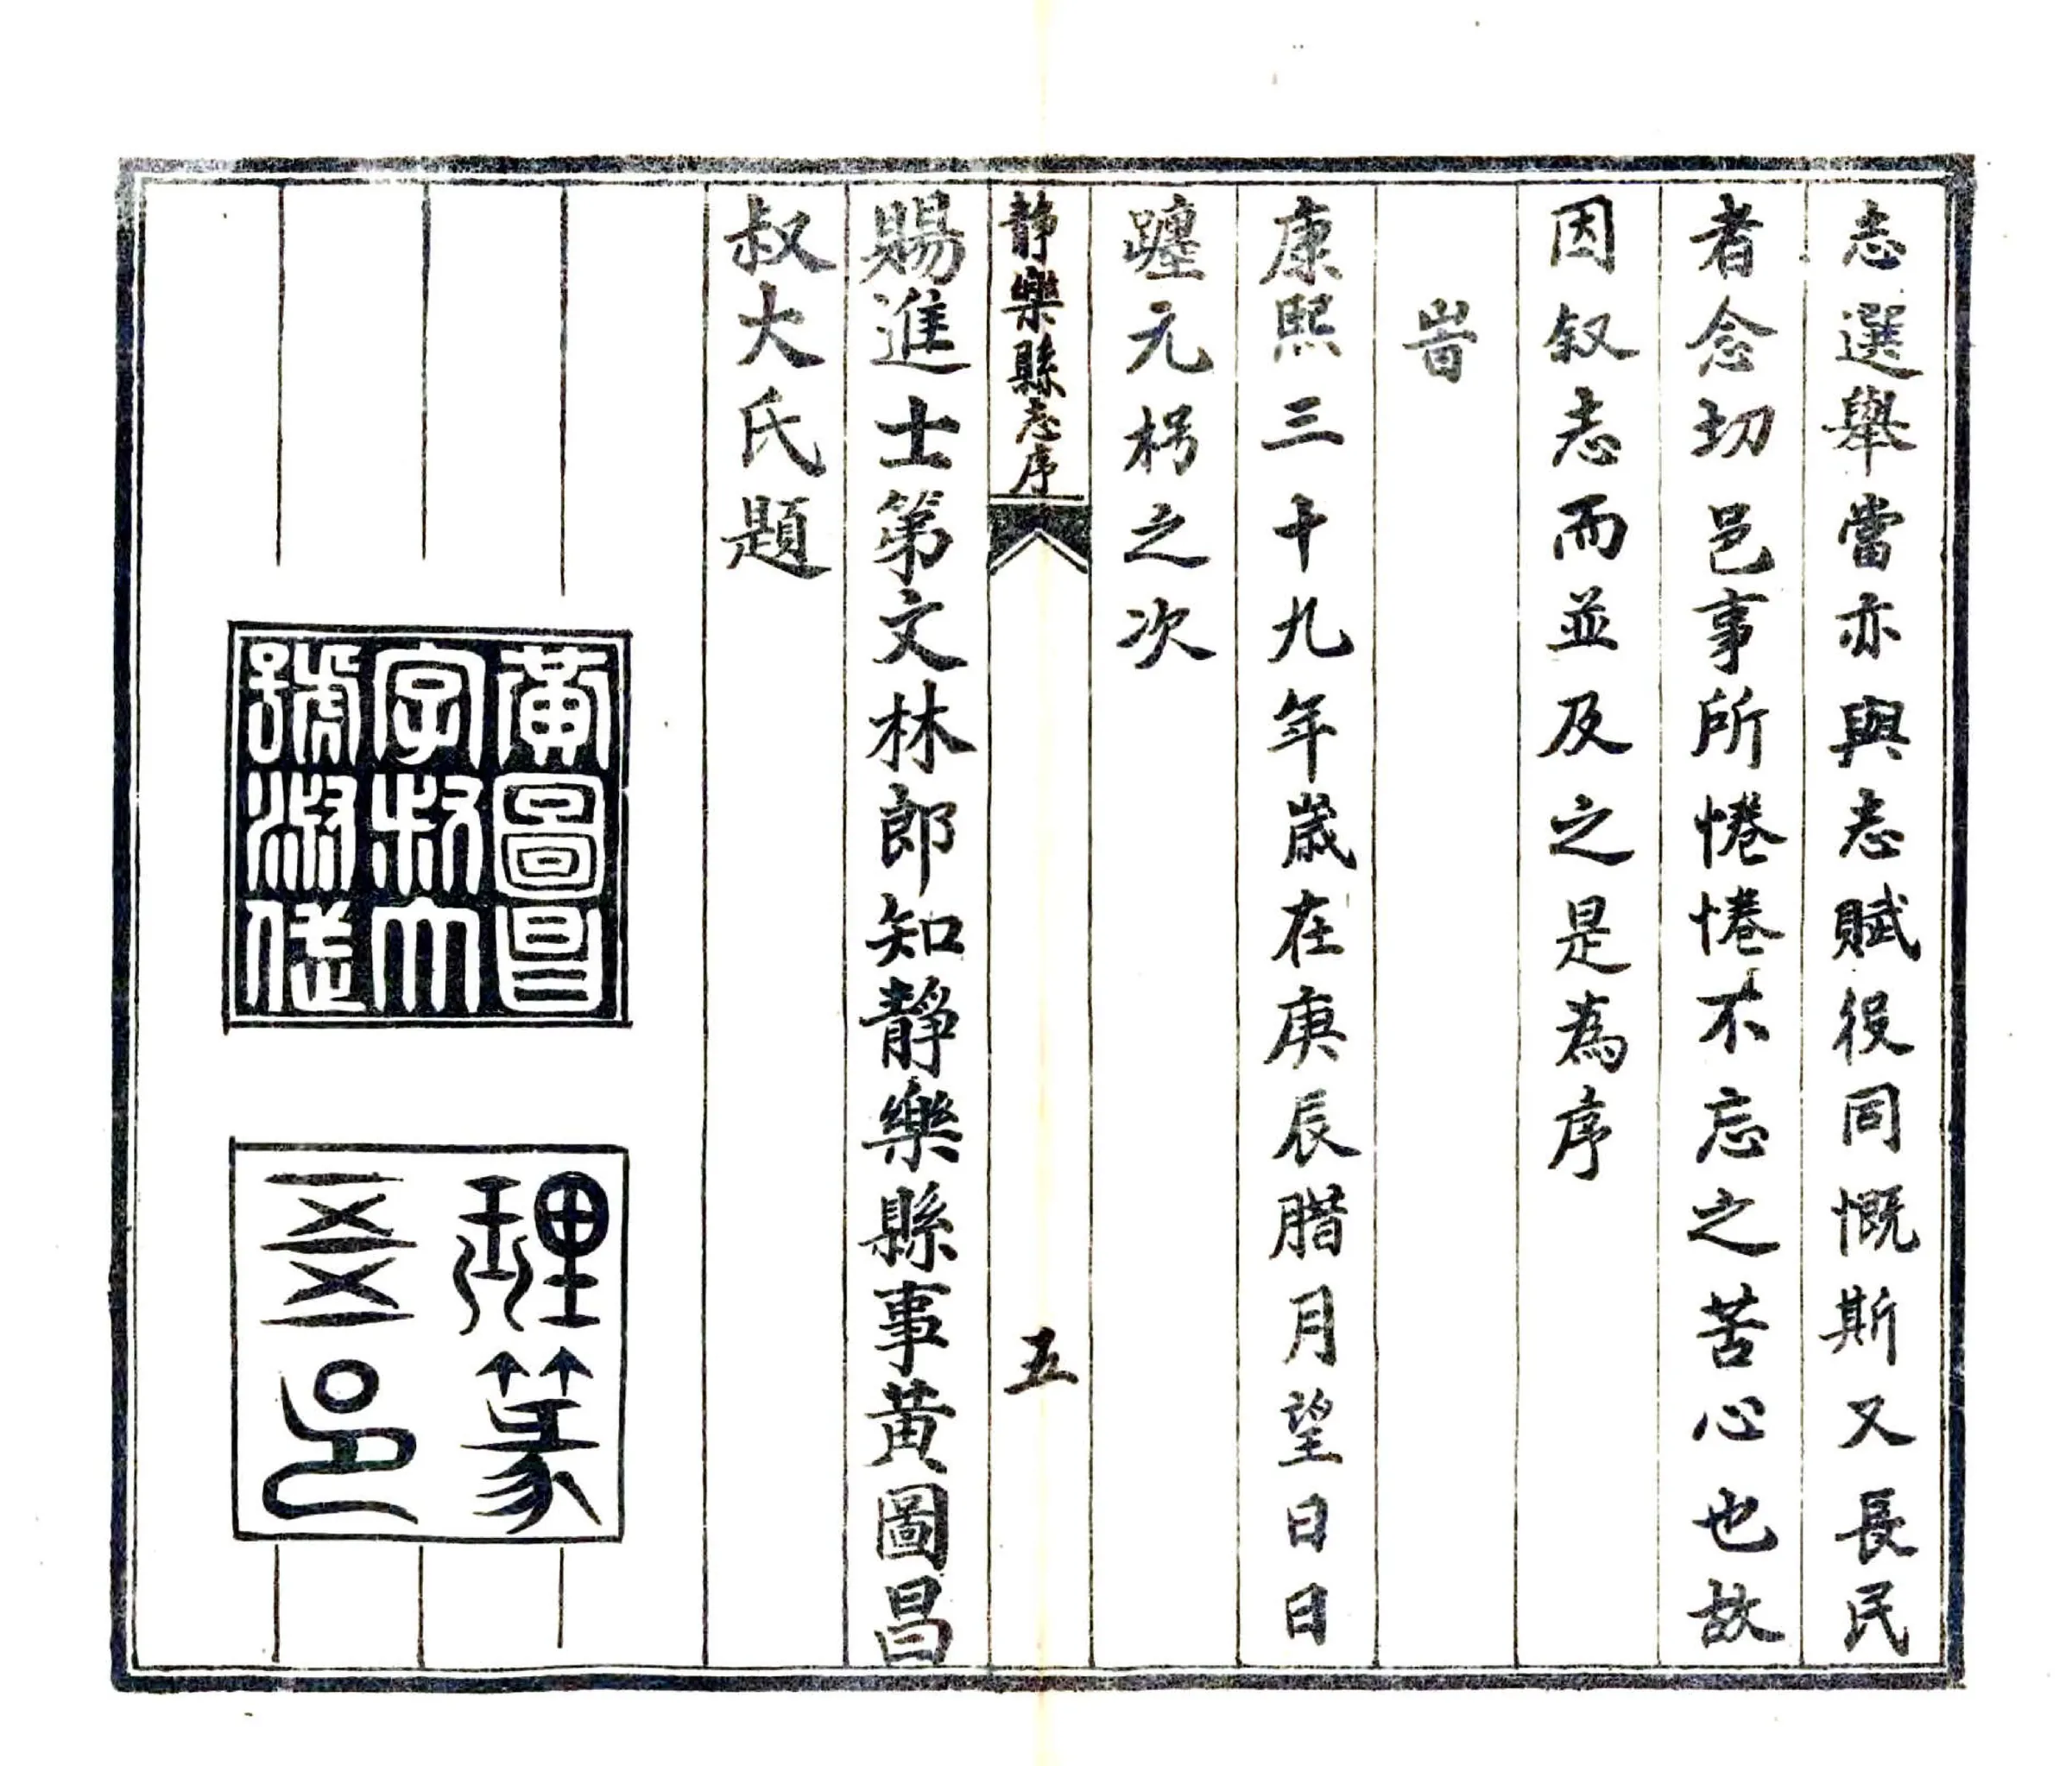 志選舉當亦與志賦役同慨斯又長民
者念切邑事所惓惓不忘之苦心也故
因叙志而並及之是為序
旹
康熙三十九年歲在庚辰腊月望日日
躔元枵之次
靜樂縣志序
五
賜進士第文林郎知靜樂縣事黃圖昌
叔大氏題
黃圖昌
字叔大
號
理篆
邑